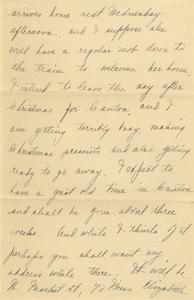 arrives home next Wednesday
afternoon, and I suppose she
will have a regular mob down to
the train to welcome her home.
I intend to leave the day after
Christmas for Canton, and I
am getting terribly busy, making
Christmas presents and also getting
ready to go away. I expect to
have a great old time in Canton
and shall be gone about three
weeks. And while I think of it
perhaps you shall want my
address while there. It will be
N. Market St, % Miss Elizabeth